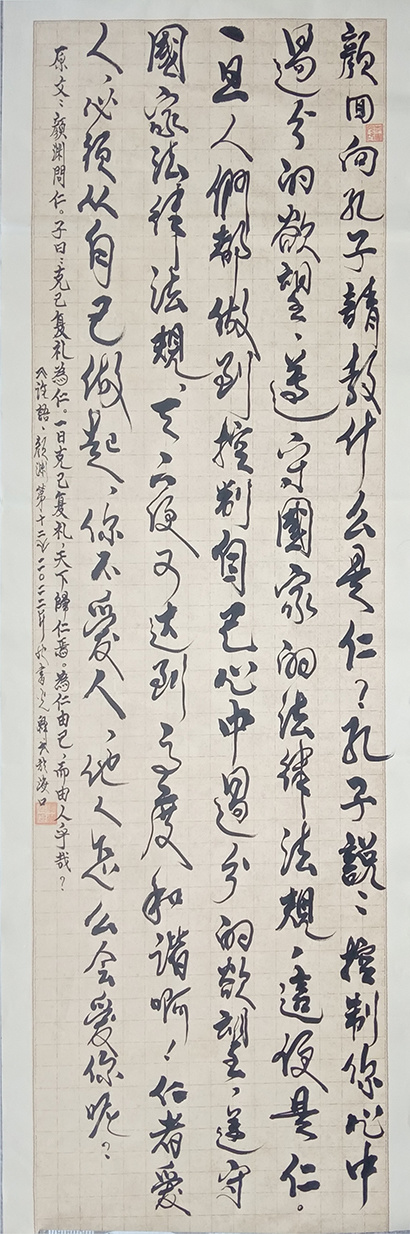 颜回向孔子請教什么是仁？孔子説：控制你心中
過分的欲望，遵守國家的法律法規，這便是仁。
一旦人們都做到控制自己心中過分的欲望，遵守
國家法律法規，天下便可达到高度和谐啊！仁者爱
人，必须从自己做起，你不爱人，他人怎么会爱你呢？
原文：顔渊問仁。子曰：克己复礼為仁。一日克己复礼，天下歸仁焉。為仁由己，而由人乎哉？
論語，顔渊第十二 二〇二二年 書 於海口